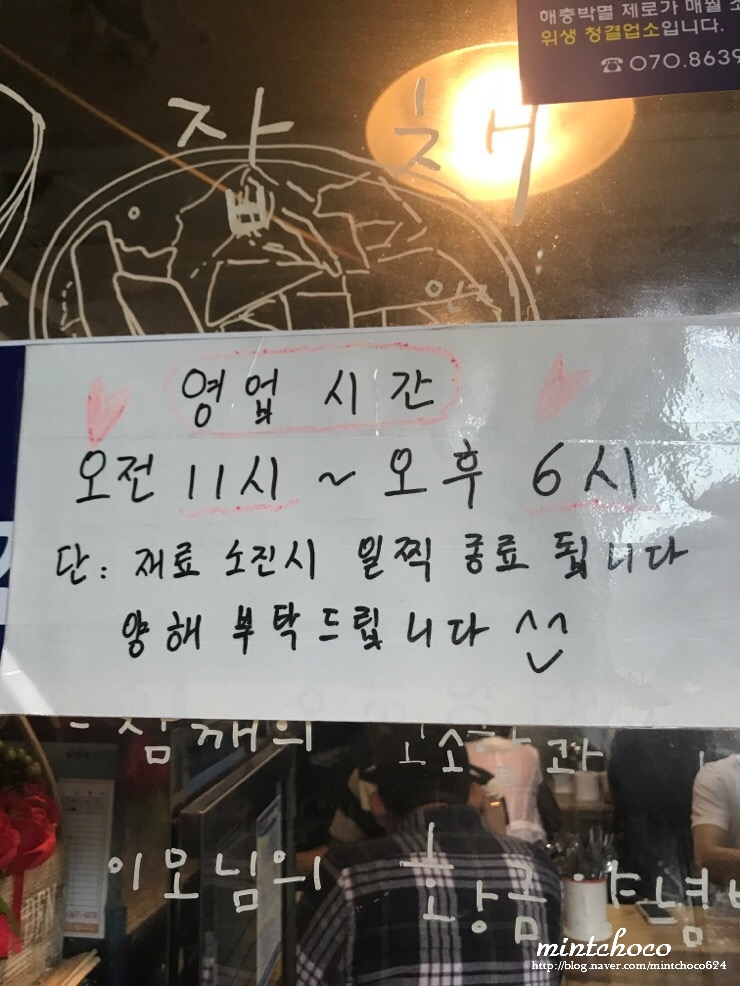 해충박멸 제로가 매월
위생 청결업소입니다.
☎ 070.8639
잡채
영업 시간
오전 11시 ~ 오후 6시
단: 재료 소진시 일찍 종료 됩니다
양해 부탁 드립니다 ^^
참깨의 고소함과
이모님의 황금양념
mintchoco
http://blog.naver.com/mintchoco624